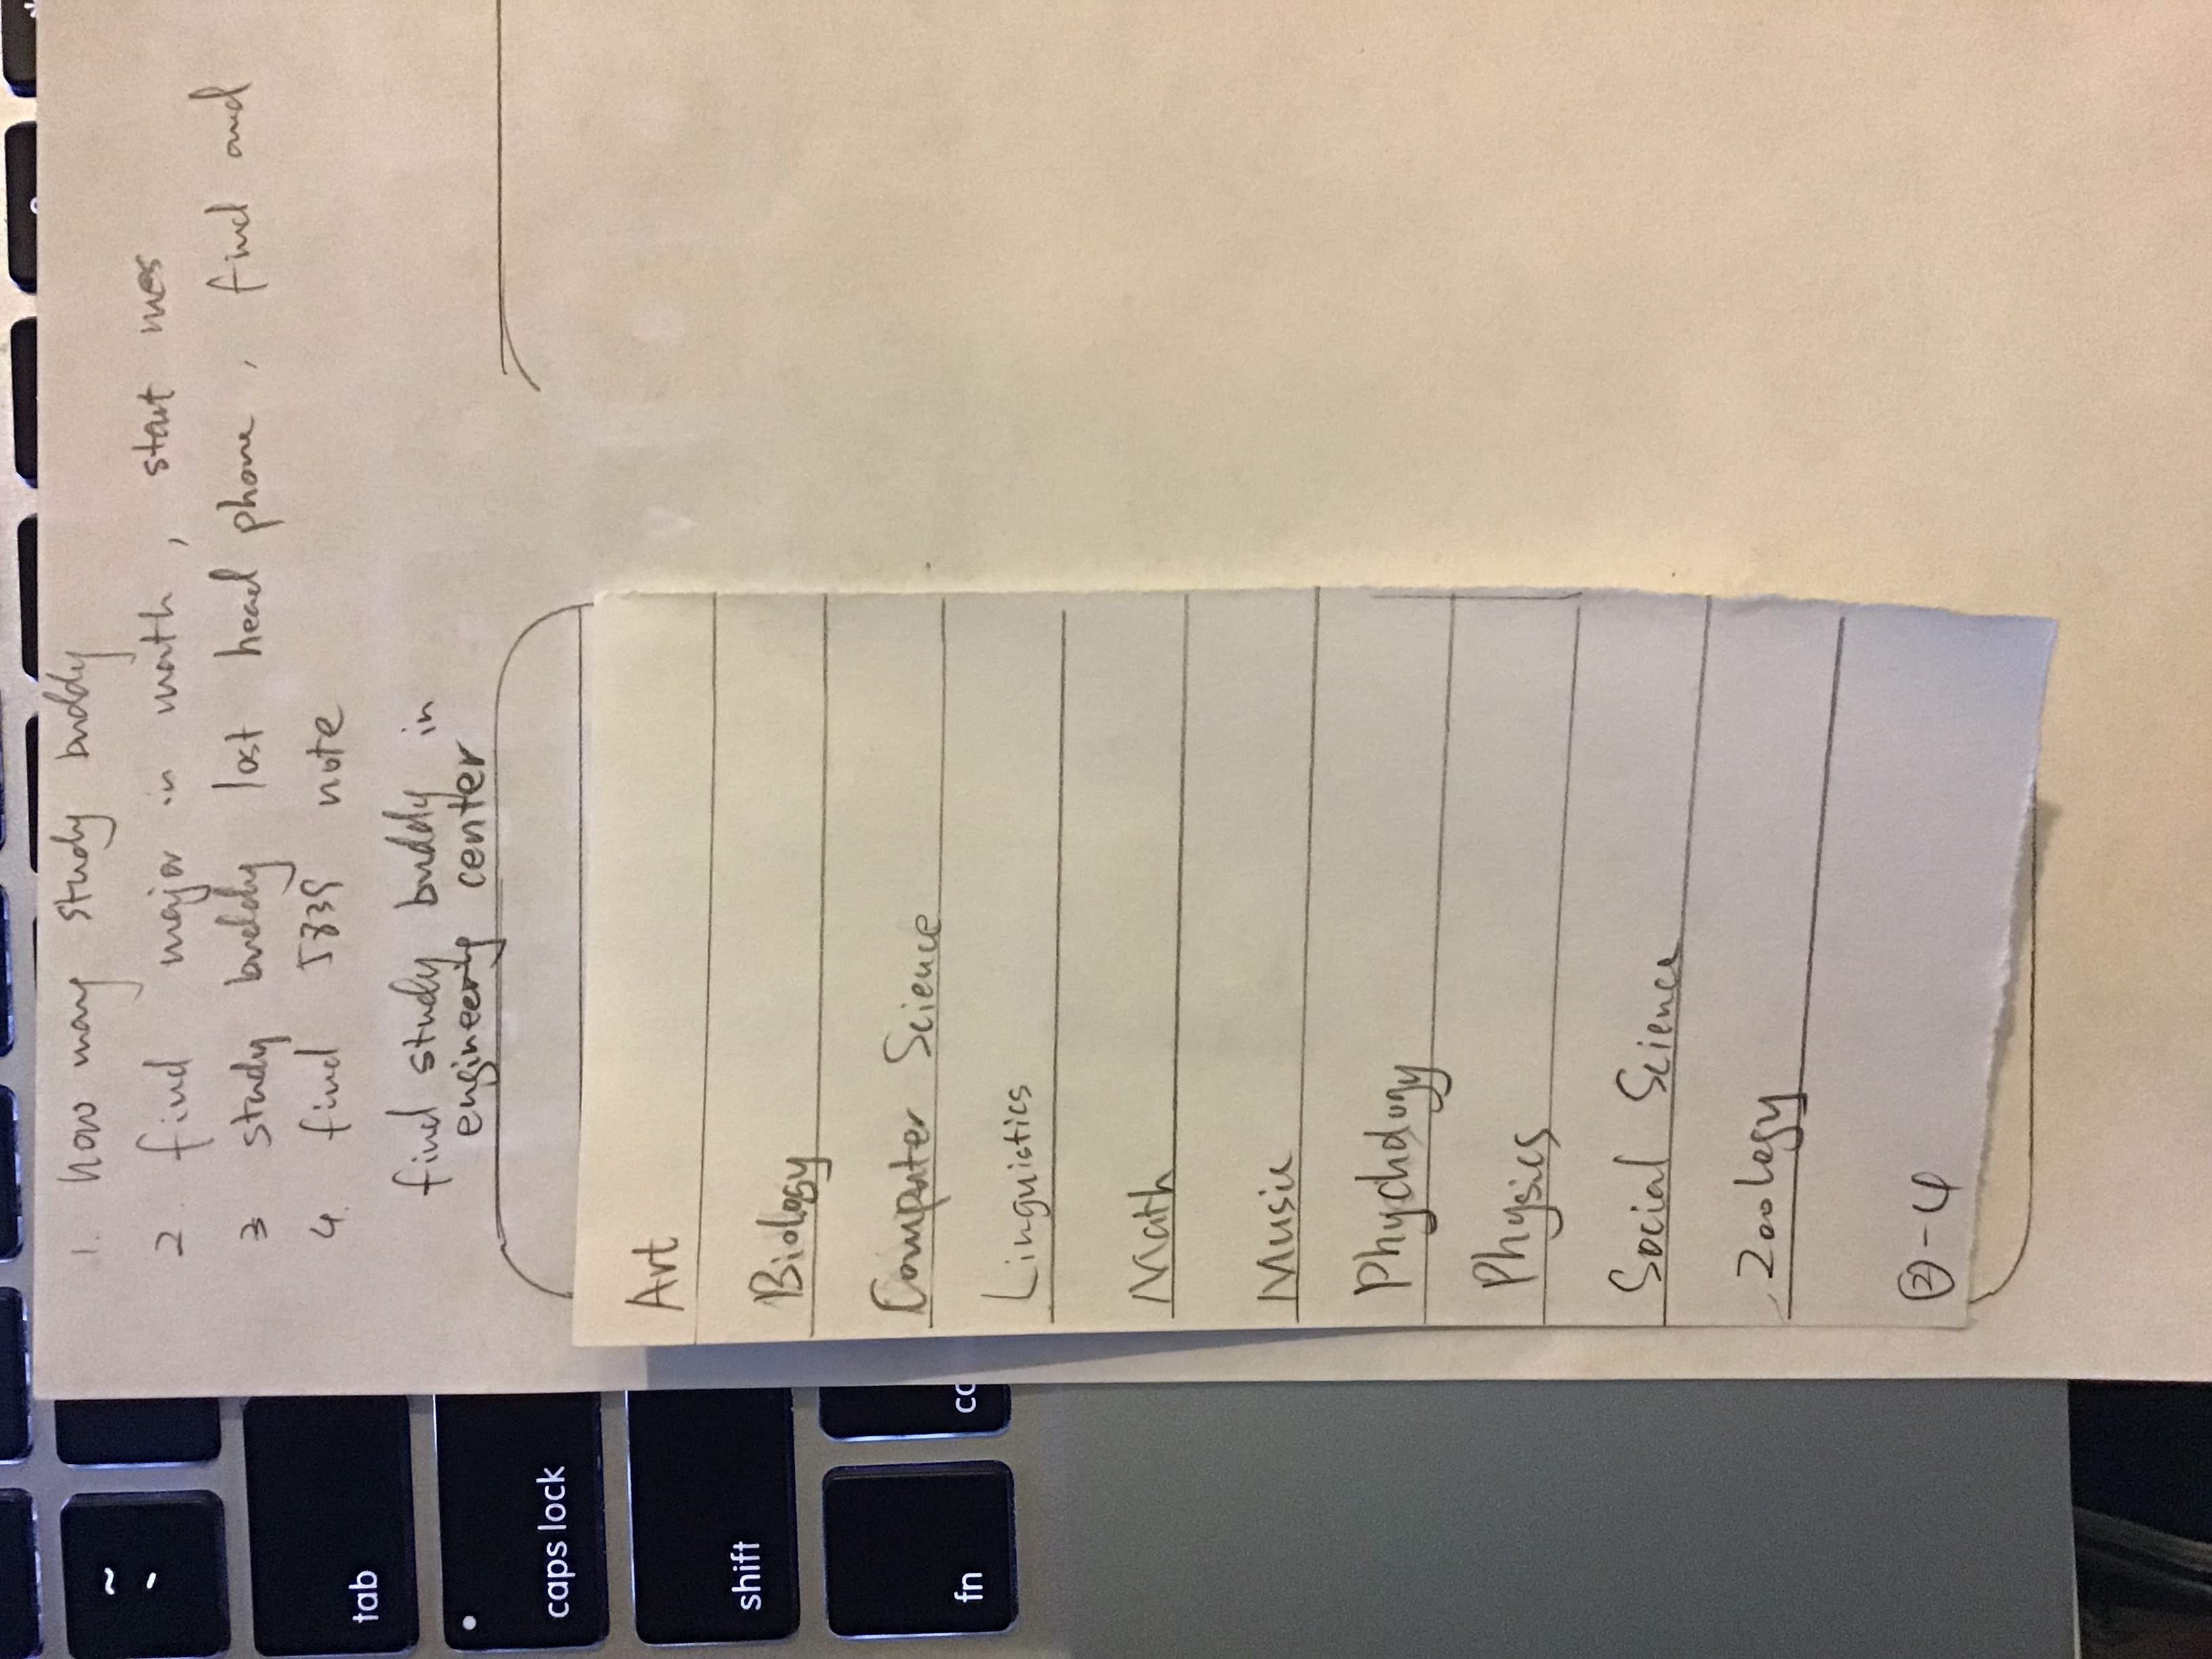 ~
`
tab
caps lock
shift
fn
1. how many study buddy
2. find major in math, start mes
3 study buddy lost head phone, find and
4. find 5839 note
find study buddy in
engineering center
Art
Biology
Computer Science
Linguistics
Math
Music
Phychology
Physics
Social Science
Zoology
②-4